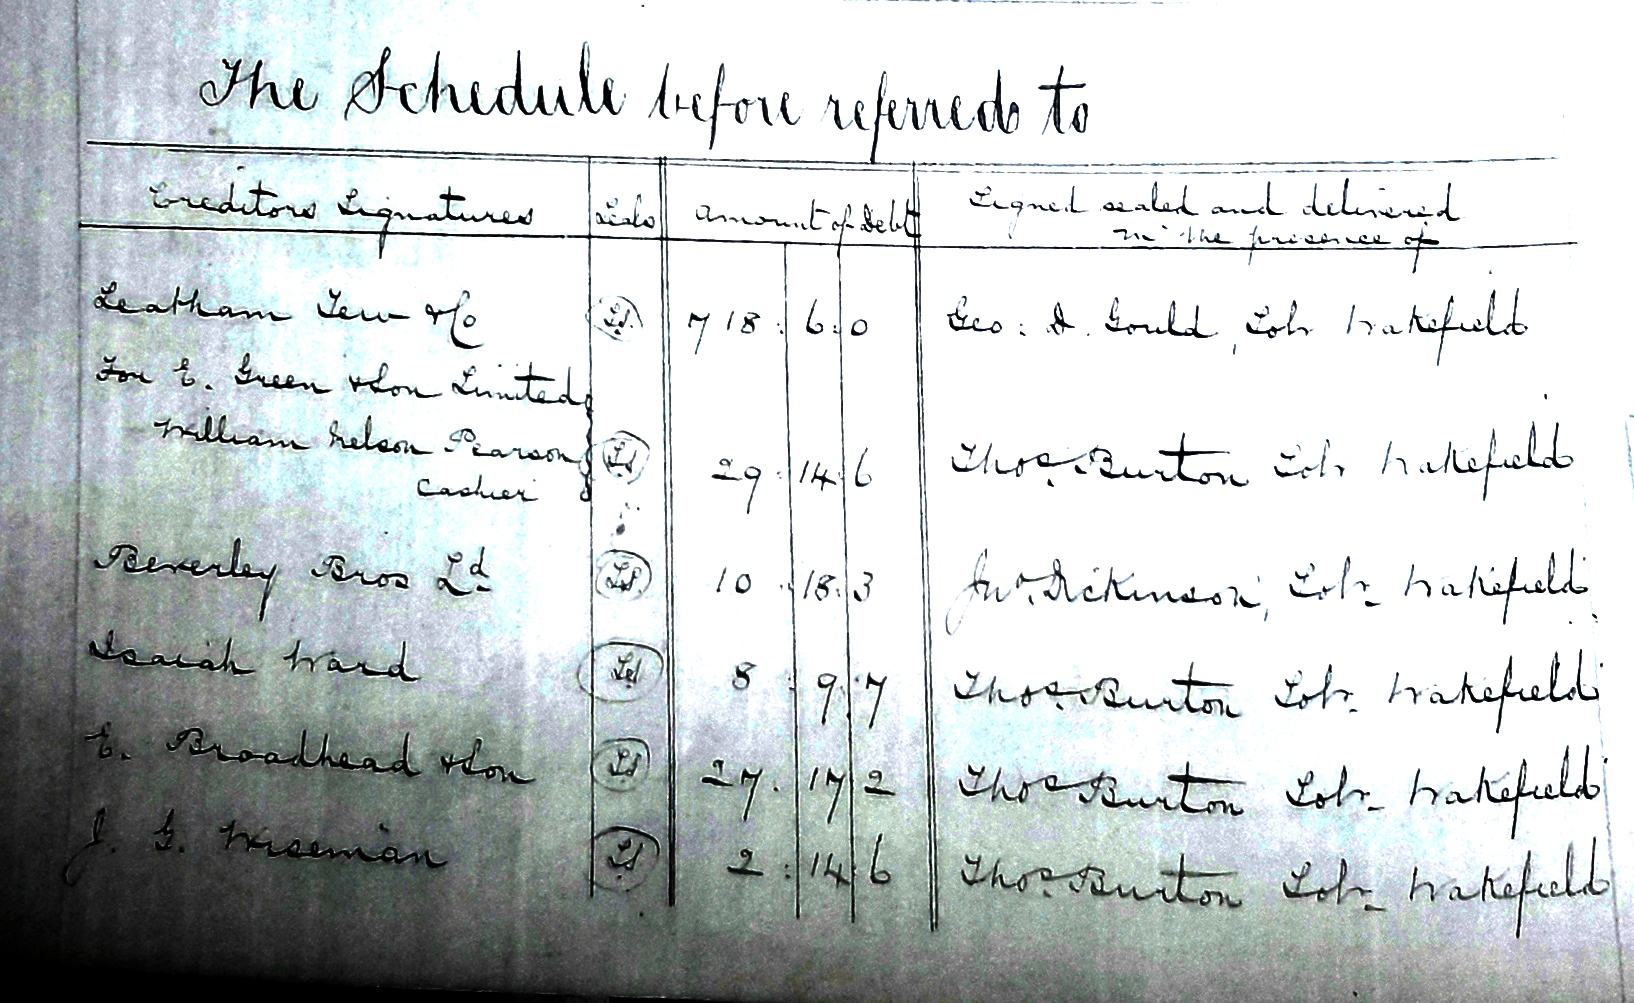 The Schedule before referred to
Creditors Signatures Seals Amount of Debt Signed sealed and delivered
in the presence of
Leatham Tew & Co LS. 718 : 6 : 0 Geo : D. Gould, Solr Wakefield
For E. Green & Son Limited
William Nelson Pearson LS 29 : 14 : 6 Thos. Burton Solr Wakefield
Cashier
Beverley Bros Ld LS. 10 : 18 : 3 Jno. Dickinson, Solr. Wakefield
Isaiah Ward LS 8 : 9 : 7 Thos. Burton Solr. Wakefield
E. Broadhead & Son LS 27 . 17 2 Thos Burton Solr. Wakefield
J. G. Wiseman LS 2 : 14 : 6 Thos. Burton Solr. Wakefield